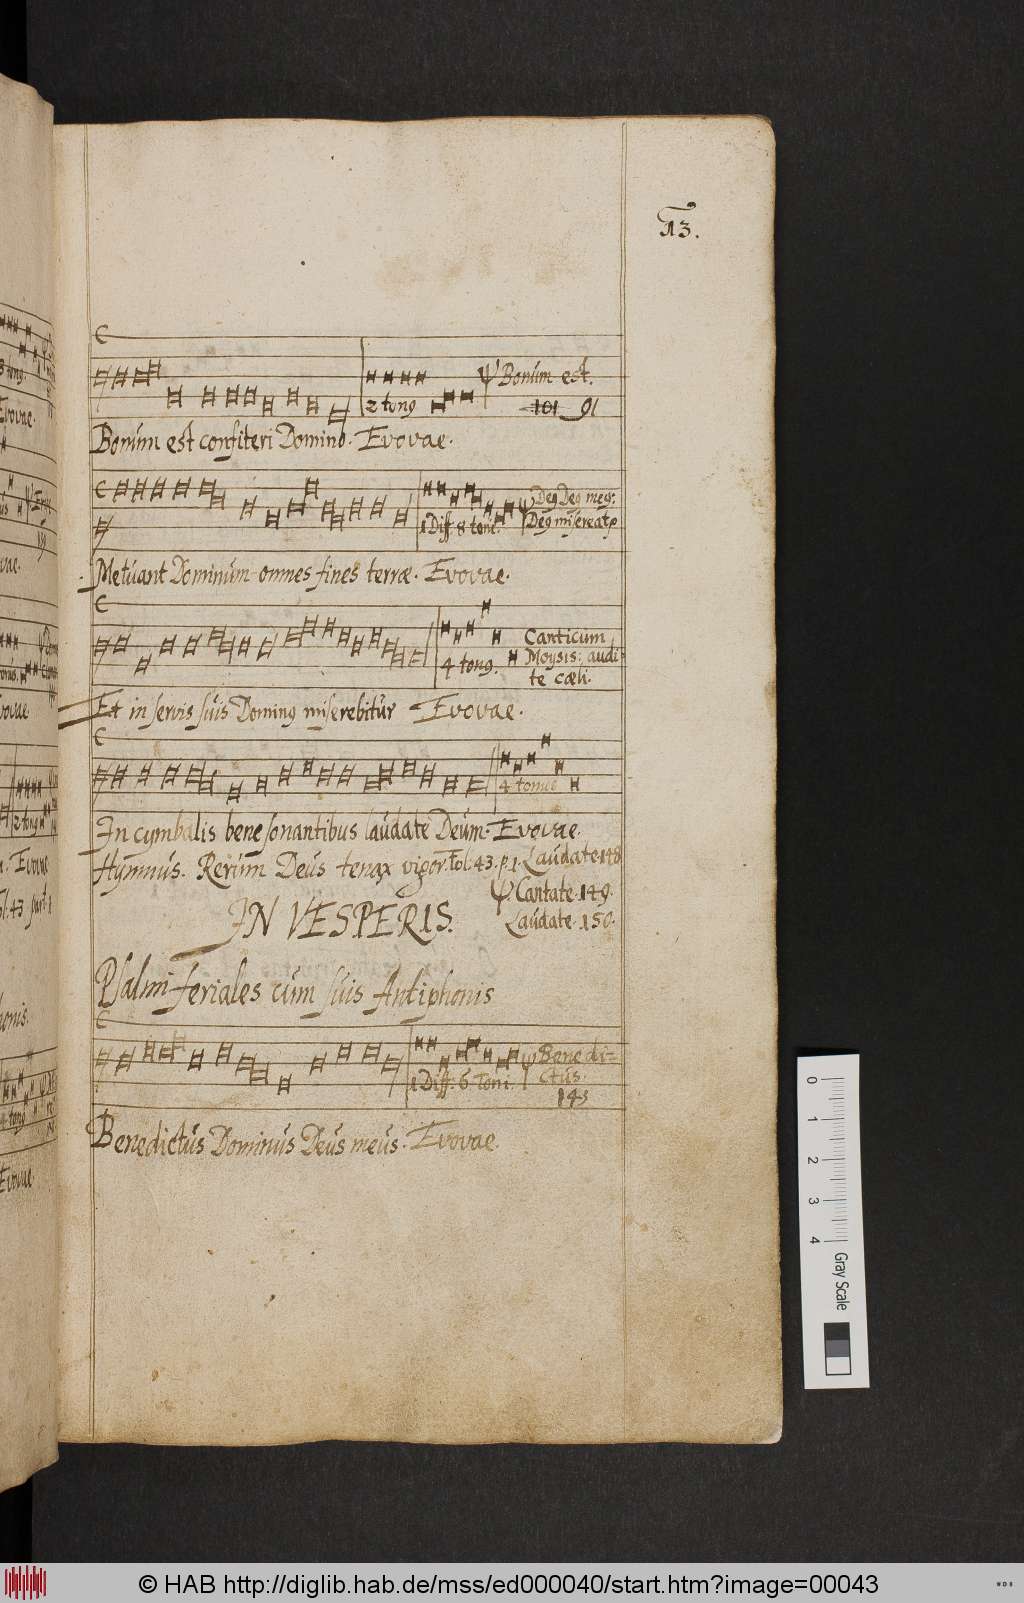 13.
Ψ Bonum est.
2 tonꝯ 101 91
Bonum est confiteri Domino. Evovae.
Deꝯ Deꝯ meꝯ:
1 Diff: 8 toni. Deꝯ misereatꝛ
Metuant Dominum omnes fines terræ. Evovae.
Canticum
4 tonꝯ. Moysis: audi-
te cæli.
Et in servis suis Dominꝯ miserebitur Evovae.
4 tonus
In cymbalis bene sonantibus laudate Deum: Evovae.
Hymnus. Rerum Deus tenax vigor. fol: 43. p. 1. Laudate 148
Ψ. Cantate. 149.
IN VESPERIS. Laudate. 150.
Psalmi feriales cum suis Antiphonis
Ψ Benedi-
1 Diff: 6 Toni. ctus.
143
Benedictus Dominus Deus meus. Evovae.
0 1 2 3 4 Gray Scale
© HAB http://diglib.hab.de/mss/ed000040/start.htm?image=00043